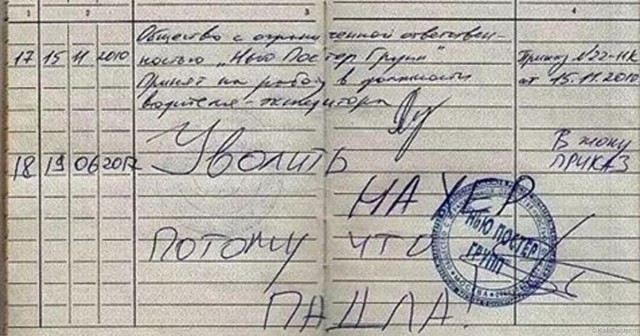 3 4
Общество с ограниченной ответствен-
17 15 11 2010 ностью „Нью Постер Групп" Приказ №22-НК
Принят на работу в должности от 15.11.2010
водителя-экспедитора
18 19 06 2012 Уволить В жопу ПРИКАЗ
НАХЕР
ПОТОМУ ЧТО
ПАДЛА!
НЬЮ ПОСТЕР
ГРУПП
МОСКВА